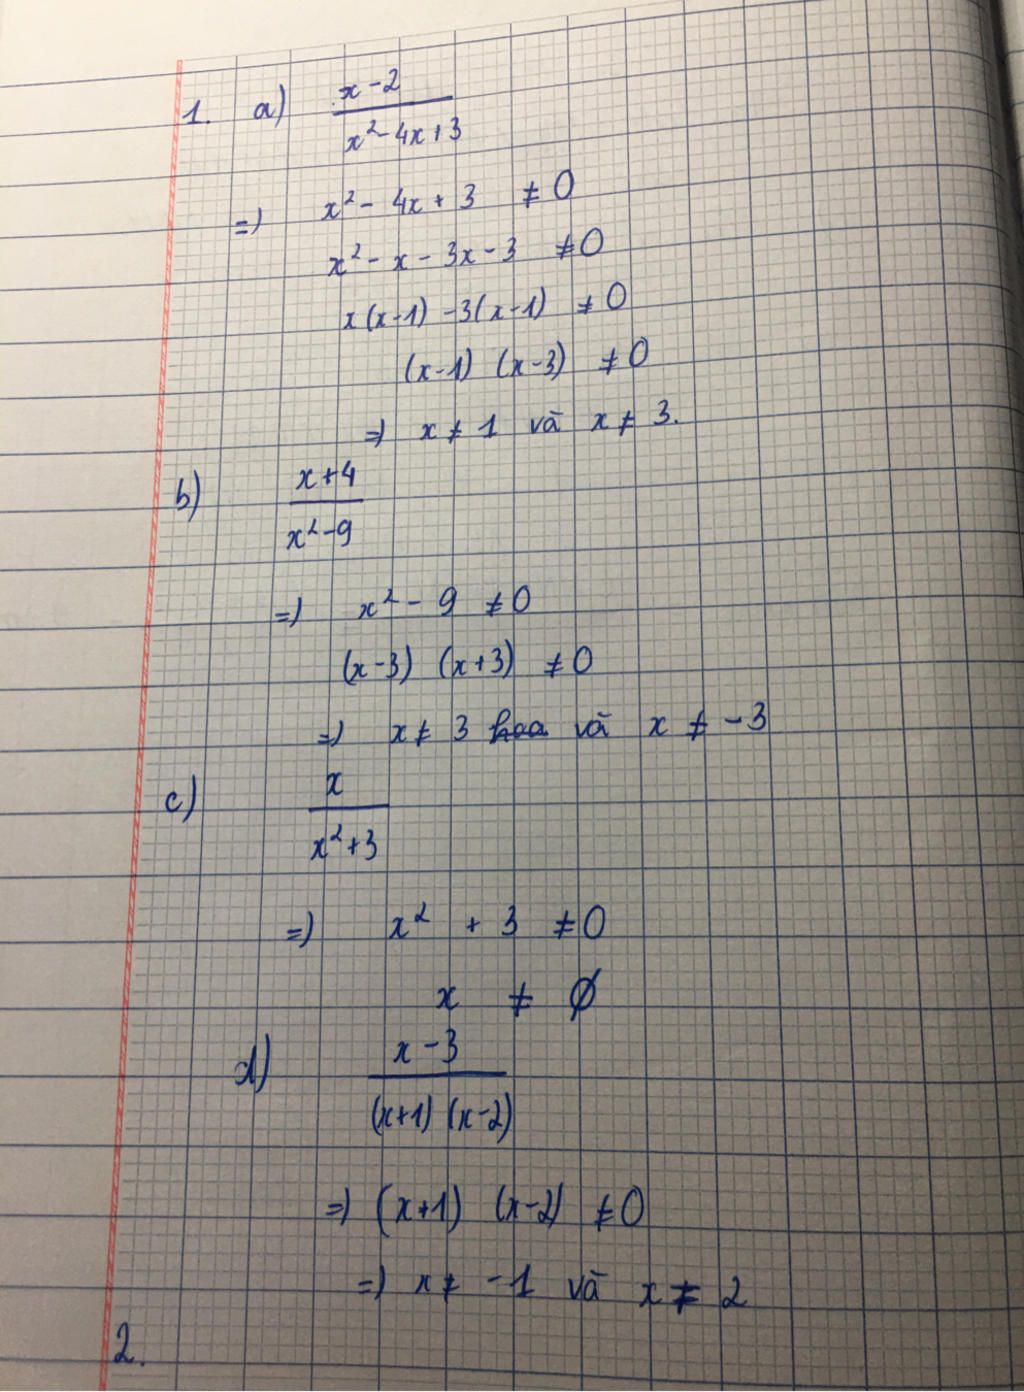 1. a) x-2 / x²-4x+3
=) x² - 4x + 3 ≠ 0
x² - x - 3x - 3 ≠ 0
x(x-1) -3(x-1) ≠ 0
(x-1) (x-3) ≠ 0
=) x ≠ 1 và x ≠ 3.
b) x+4 / x²-9
=) x² - 9 ≠ 0
(x-3) (x+3) ≠ 0
=) x ≠ 3 và x ≠ -3
c) x / x²+3
=) x² + 3 ≠ 0
x ≠ ∅
d) x-3 / (x+1) (x-2)
=) (x+1) (x-2) ≠ 0
=) x ≠ -1 và x ≠ 2
2.